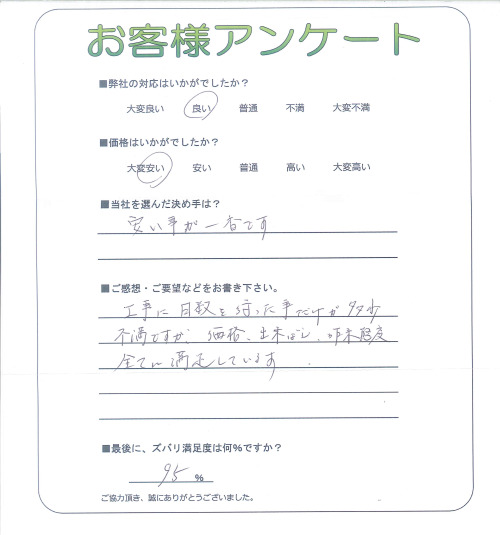 お客様アンケート
■弊社の対応はいかがでしたか？
大変良い 良い 普通 不満 大変不満
■価格はいかがでしたか？
大変安い 安い 普通 高い 大変高い
■当社を選んだ決め手は？
安い事が一番です
■ご感想・ご要望などをお書き下さい。
工事に日数を待った事だけが多少
不満ですが、価格、出来ばえ、態度
全てに満足しています.
■最後に、ズバリ満足度は何％ですか？
95 %
ご協力頂き、誠にありがとうございました。